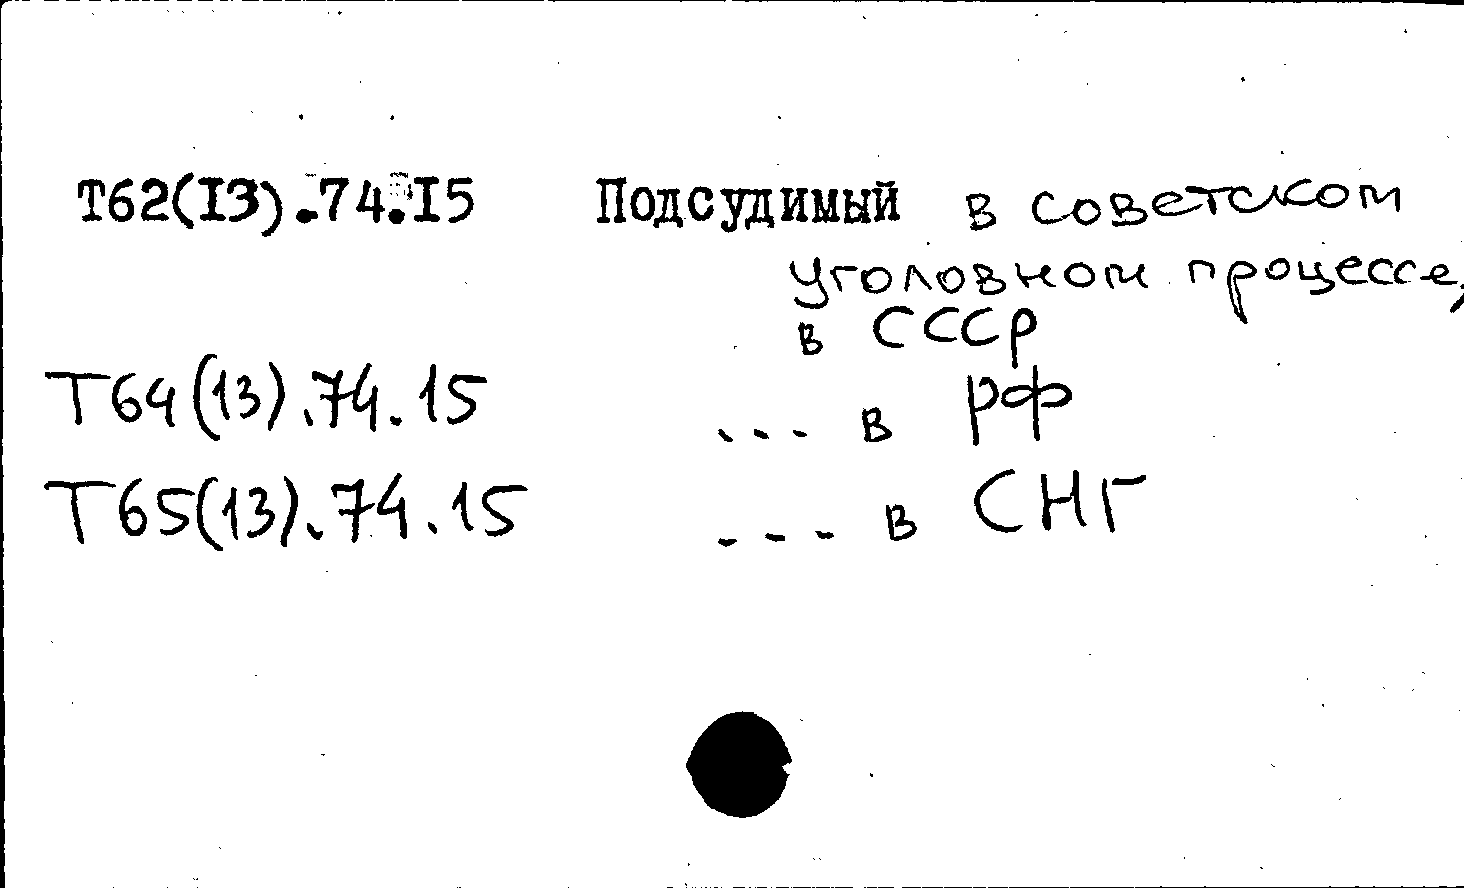 Т62(I3).74.I5 Подсудимый в советском
уголовном процессе,
в СССР
Т64(13).74.15 ... в РФ
Т65(13).74.15 --- в СНГ